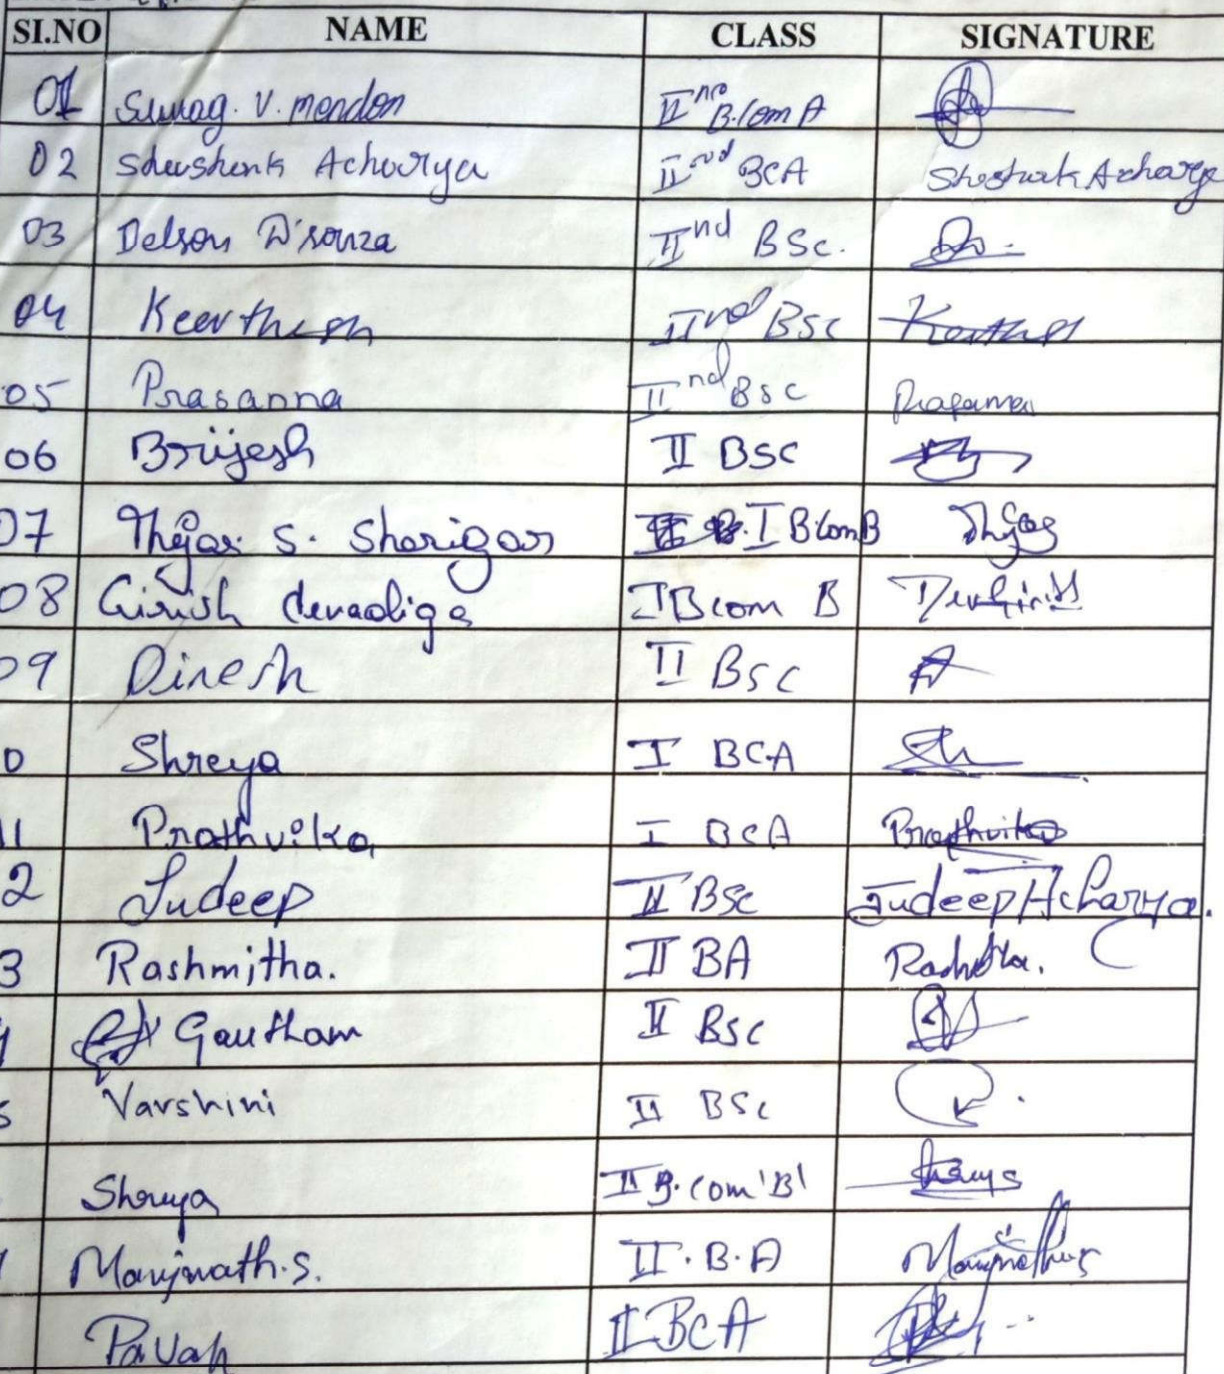 SI.NO NAME CLASS SIGNATURE
01 Suwag. V. mendon II nd B.com A
02 Shashank Acharya II nd BCA Shashank Acharya
03 Delson D'souza II nd BSc.
04 Keerthesh II nd BSc
05 Prasanna II nd BSc Prasanna
06 Brijesh II BSC
07 Thejas S. Sherigar I B.com B Thejas
08 Girish devadiga I Bcom B
09 Dinesh II BSC
0 Shreya I BCA
11 Prathvika I BCA Prathvika
2 Sudeep II BSc Sudeep Acharya.
3 Rashmitha. II BA
Gautham II BSC
5 Varshini II BSC
Shreya II B.com 'B'
Manjunath.S. II.B.A
Pavan II BCA